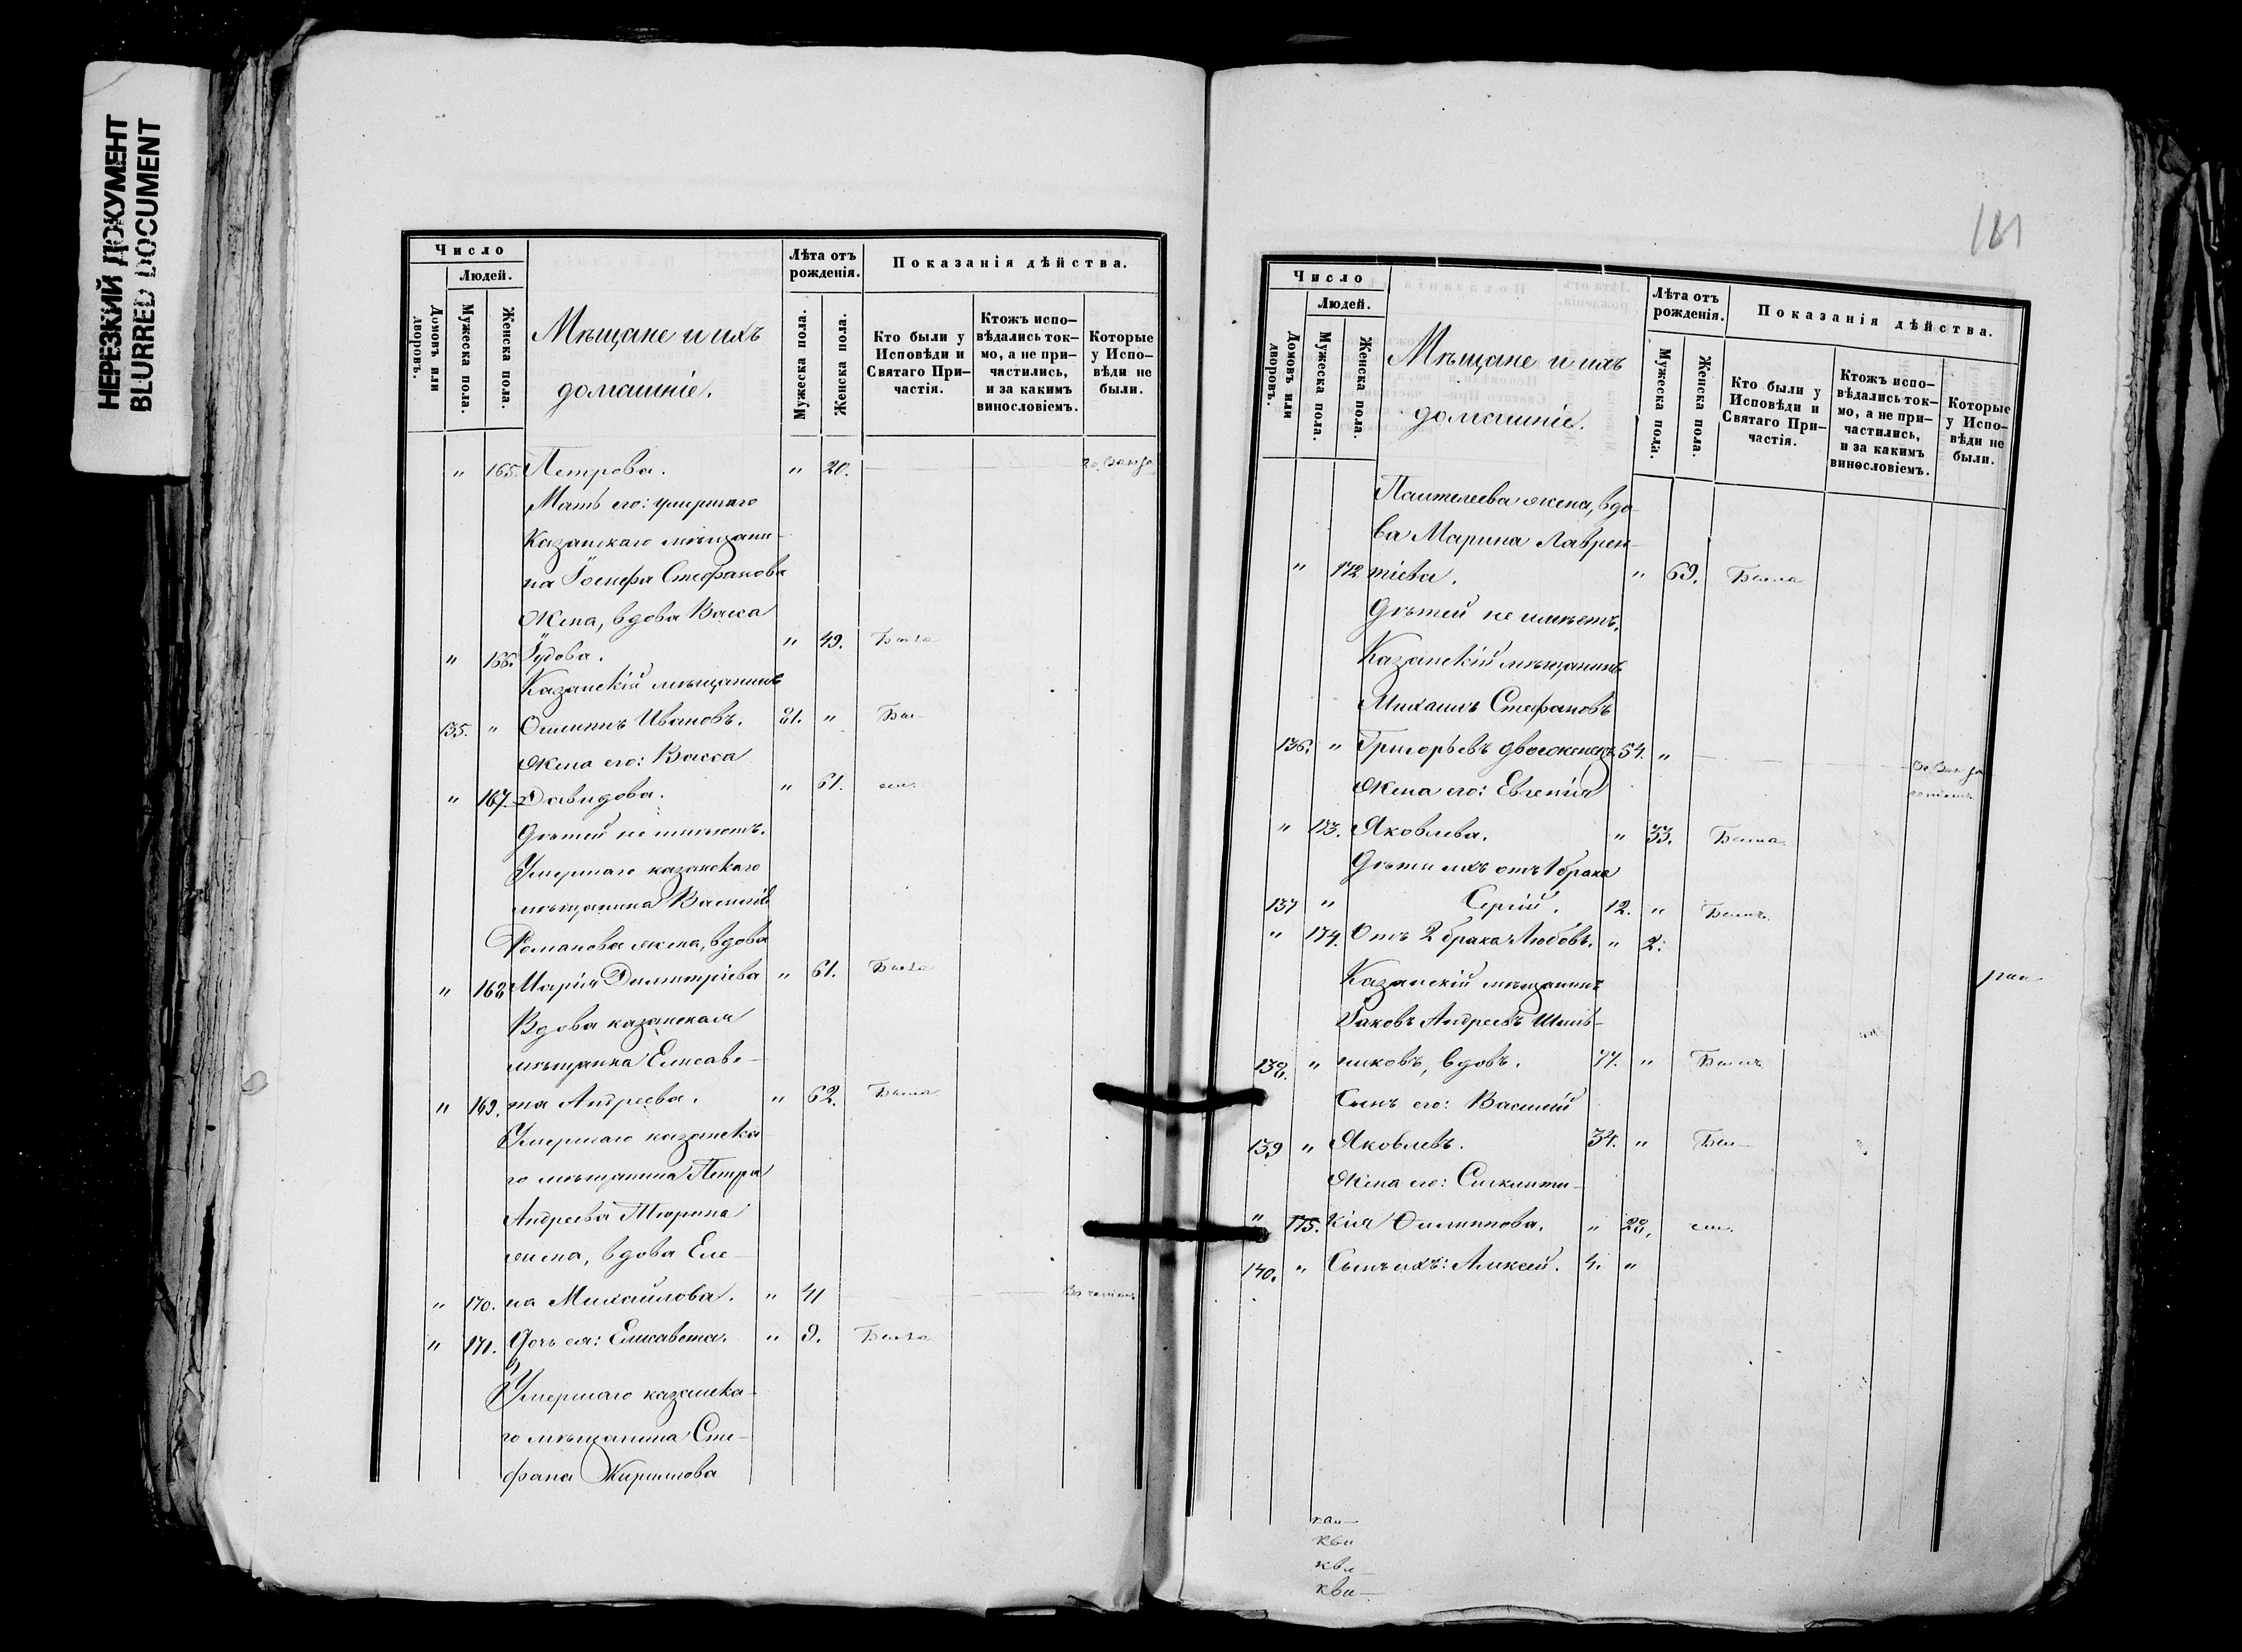 НЕРЕЗКИЙ ДОКУМЕНТ
BLURRED DOCUMENT
Число
Людей.
Домовъ или дворовъ.
Мужеска пола.
Женска пола.
Мѣщане и ихъ
домашніе.
Лѣта отъ рожденія.
Мужеска пола.
Женска пола.
Показанія дѣйства.
Кто были у Исповѣди и Святаго Причастія.
Ктожъ исповѣдались токмо, а не причастились, и за какимъ винословіемъ.
Которые у Исповѣди не были.
" 165. Петрова. " 20.
Мать его: умершаго
Казанскаго мѣщани-
на Іосифа Стефанова
жена, вдова Васса
" 166. Іудова. " 49. Была
Казанскій мѣщанинъ
135. " Филиппъ Ивановъ. 81. " Был-
Жена его: Васса
" 167. Давидова. " 61.
Дѣтей не имѣютъ.
Умершаго казанскаго
мѣщанина Василія
Романова жена, вдова
" 168. Марія Димитріева " 61. Была
Вдова казанская
мѣщанка Елисаве-
" 169. та Андреева. " 62. Была
Умершаго казанска-
го мѣщанина Петра
Андреева Тюрина
жена, вдова Еле-
" 170. на Михайлова. " 41
" 171. Дочь ея: Елисавета. " 9. Была
Умершаго казанска-
го мѣщанина Сте-
фана Кириллова
181
Число
Людей.
Домовъ или дворовъ.
Мужеска пола.
Женска пола.
Мѣщане и ихъ
домашніе.
Лѣта отъ рожденія.
Мужеска пола.
Женска пола.
Показанія дѣйства.
Кто были у Исповѣди и Святаго Причастія.
Ктожъ исповѣдались токмо, а не причастились, и за какимъ винословіемъ.
Которые у Исповѣди не были.
Пантелеева жена, вдо-
ва Марина Лаврен-
" 172 тіева. " 69. Была
Дѣтей не имѣетъ.
Казанскій мѣщанинъ
Михаилъ Стефановъ
136. " Григорьевъ двоеженецъ. 54. "
Жена его: Евгенія
" 173. Яковлева. " 33. Была.
Дѣти ихъ отъ 1 брака
137 " Сергій. 12. " Былъ.
" 174. Отъ 2 брака Любовь. " 2.
Казанскій мѣщанинъ
Іаковъ Андреевъ
138. " никовъ, вдовъ. 77. " Былъ
Сынъ его: Василій
139 " Яковлевъ. 34. " Был-
Жена его: Сикlити-
" 175. кія Филиппова. " 28.
140. " Сынъ ихъ: Алексей. 4. "